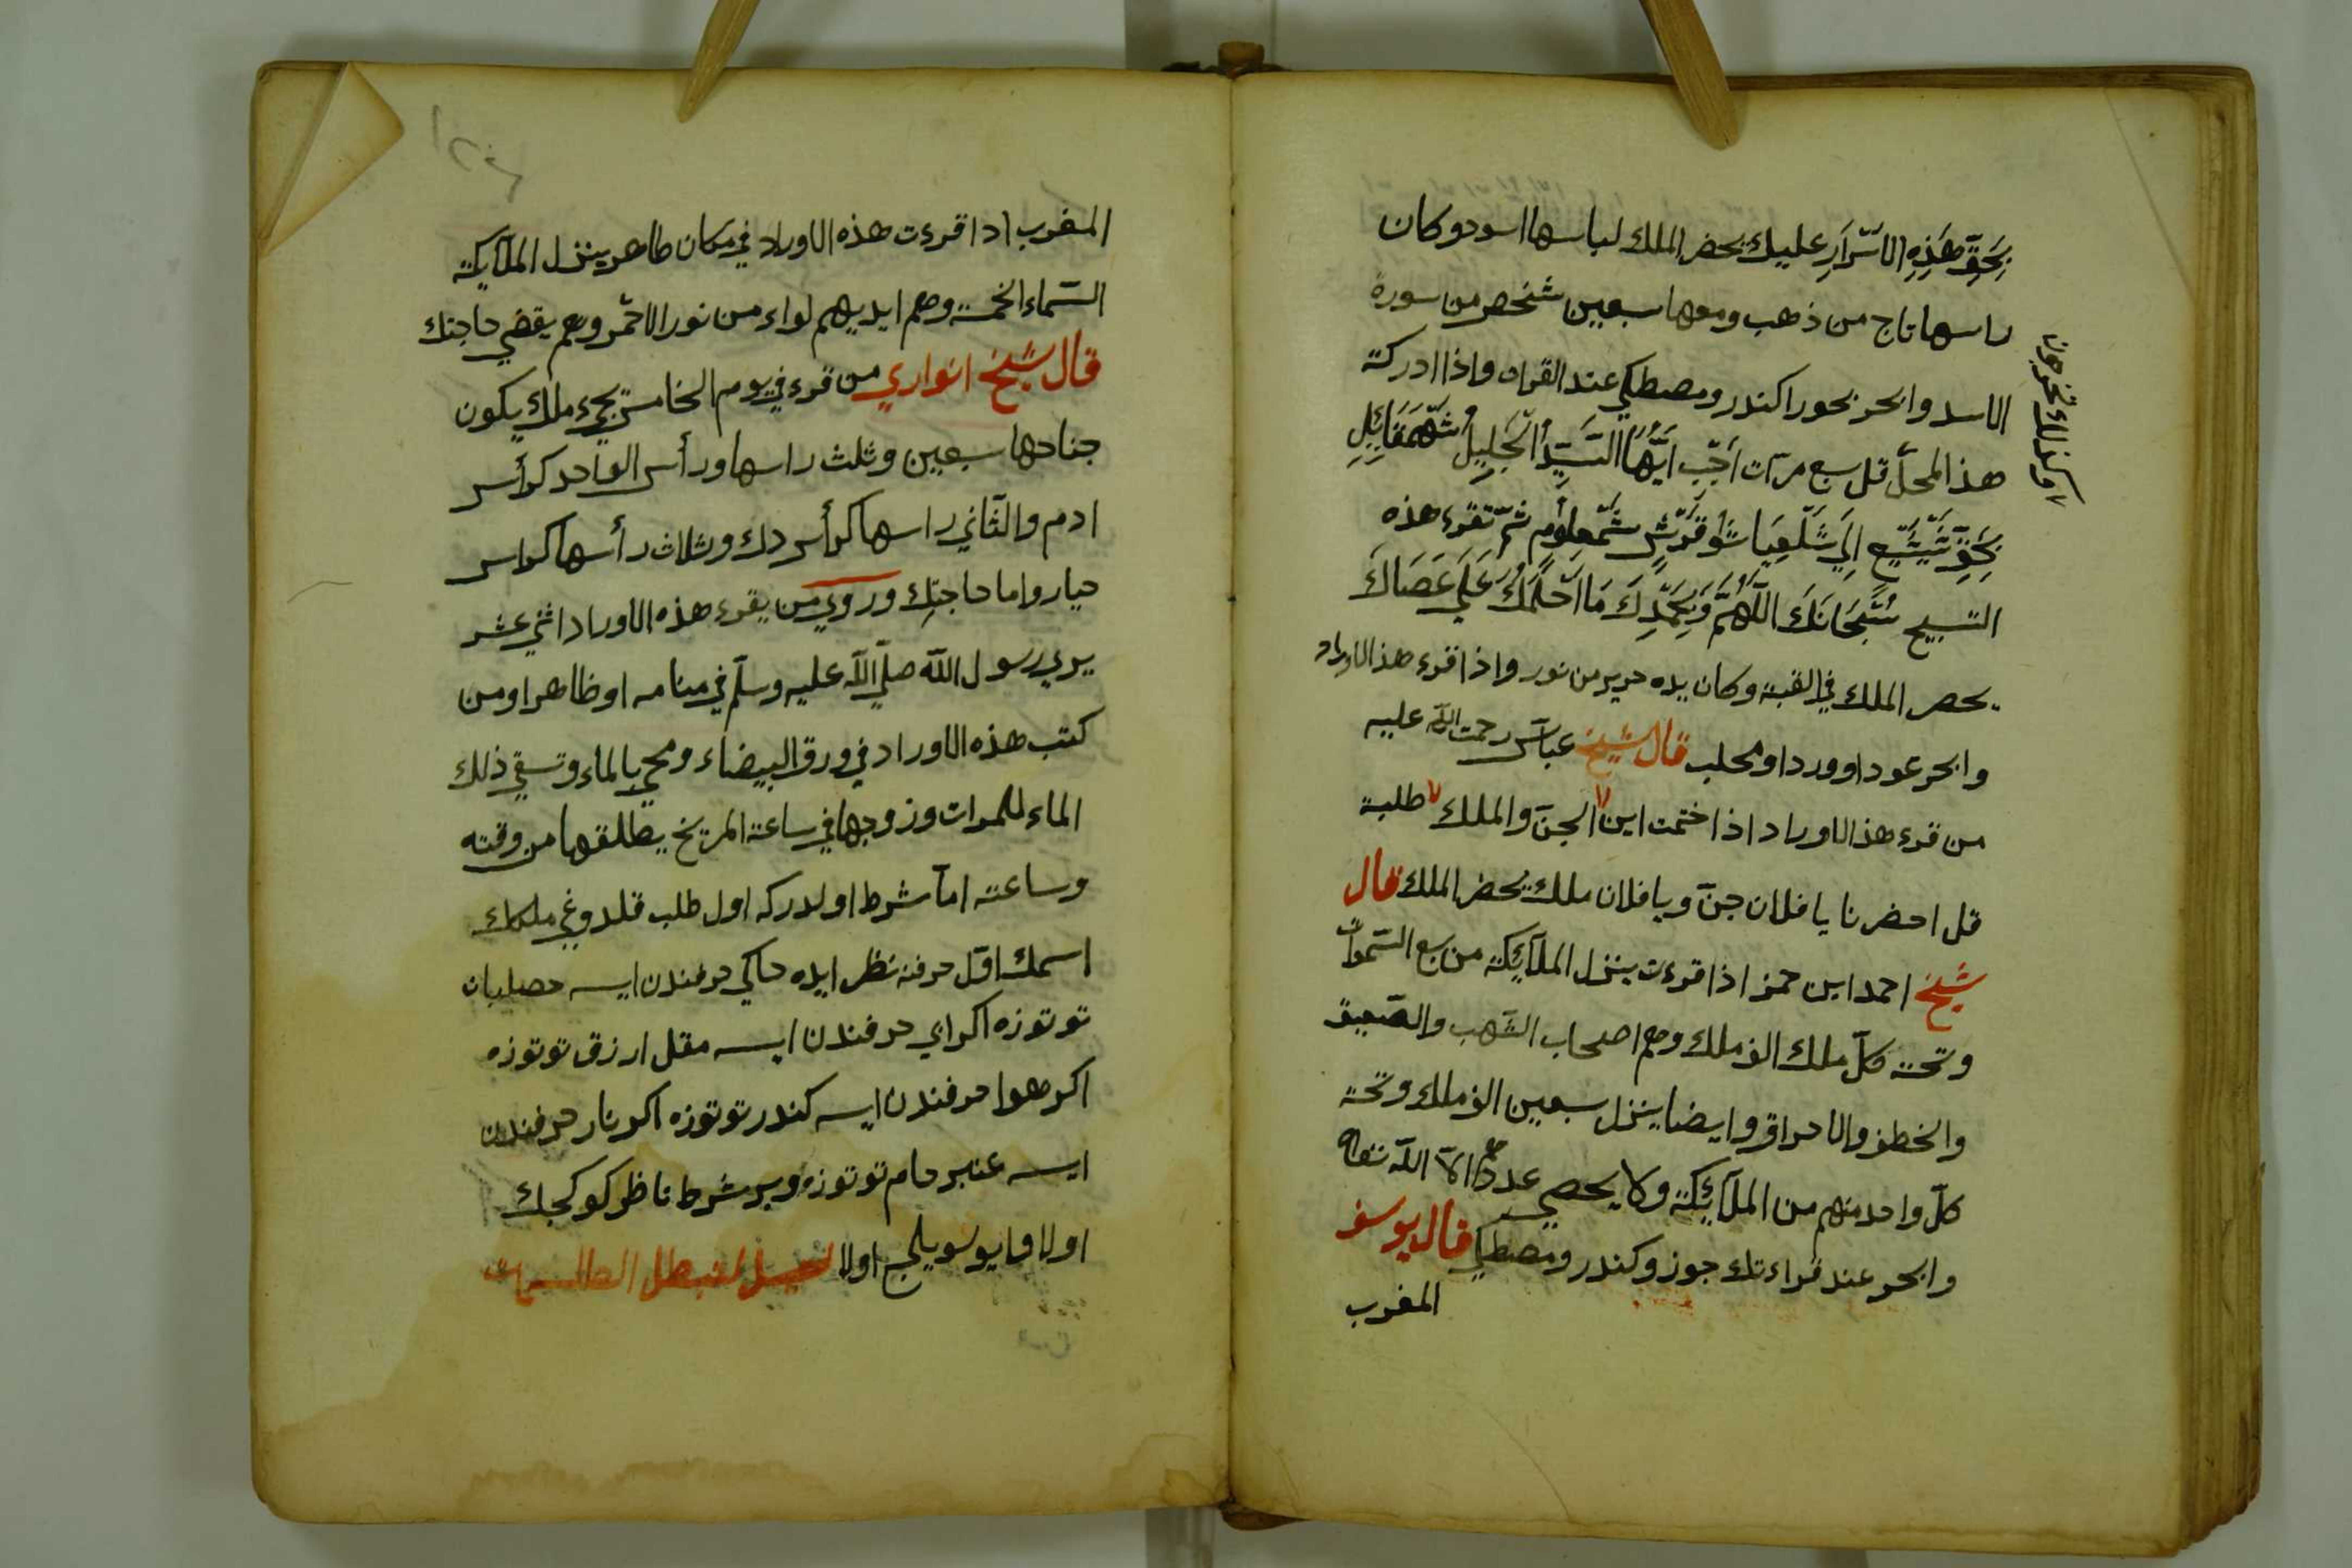 بِحَقِّ هَذِهِ الاَسْرَارِ عليك يحضر الملك لباسها اسود وكان
راسها تاج من ذهب ومعها سبعين شخص من سورة
الاسد وابخر بخورا كندر ومصطكي عند القران واذا ادركة
هذا المحلّ قل سبع مرّات اَجِبْ اَيُّهَا السَّيِّدُ الْجَلِيلُ
بِحَقِّ ثم تقرء هذه
التسبيح سُبْحَانَكَ اللّهُمَّ وَبِحَمْدِكَ مَا اَحْلَمَكَ عَلَى عَصَاكَ
يحصر الملك في القبة وكان يده حرير من نور واذا قرء هذ الاوراد
وابخر عودا ووردا ومحلب قال شيخ عباس رحمت الله عليه
من قرء هذ الاوراد اذا ختمت اين الجنّ والملك طلبة
قل احضرنا يا فلان جنّ ويا فلان ملك يحضر الملك قال
شيخ احمد ابن حمز اذا قرءت ينزل الملآئكة من سبع السّموات
وتحته كلّ ملك الف ملك وهم اصحاب الشّهب والصّعيق
والخطف والاحراق وايضا ينزل سبعين الف ملك وتحته
كلّ واحد منهم من الملآئكة ولا يحصى عددهم الاّ الله تعالى
وابخر عند قراءتك جوز وكندر ومصطكي قال يوسف
المغرب
المغرب اذا قرءت هذه الاوراد في مكان طاهر ينزل الملآيكة
السّماء الخمسة وهم ايديهم لواء من نور الاحمر وهم يقضي حاجتك
قال شيخ انواري من قرء في يوم الخامس يجيء ملك يكون
جناحها سبعين وثلث راسها ورأس الواحد كرأس
ادم والثّاني راسها كرأس دك وثلاث رأسها كراس
حيار واما حاجتك وروي من يقرء هذه الاوراد اثني عشر
يرى رسول الله صلّى الله عليه وسلّم في منامه او ظاهرا ومن
كتب هذه الاوراد في ورق البيضاء ومحي بالماء وتسقي ذلك
الماء للمرات وزوجها في ساعة المريخ يطلقها من وقته
وساعته امّا شرط اولدركه اول طلب قلدوغي ملكك
اسمك اوّل حرفنه نظر ايده خاكي حرفندن ايسه حصلبان
توتوزه اكر اي حرفندن ايسه مقل ارزق توتوزه
اكر هوا حرفندن ايسه كندر توتوزه اكر نار حرفندن
ايسه عنبر خام توتوزه وبر شرط ناظر كوكجك
اولا لمبطل الطلسمات